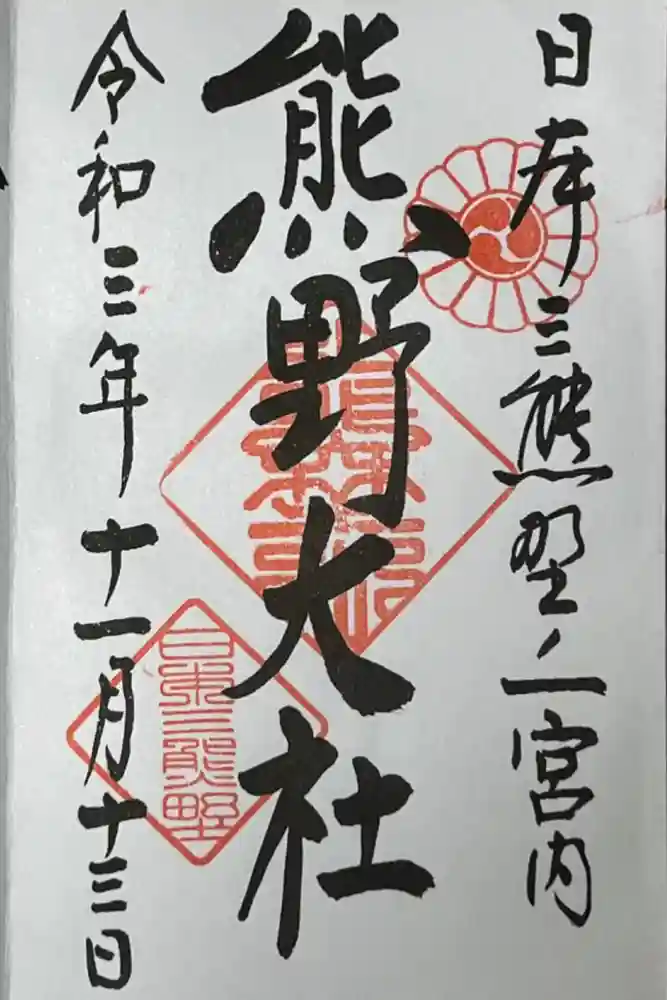 日本三熊野ノ一宮内
熊野大社
令和三年十一月十三日
日本三熊野